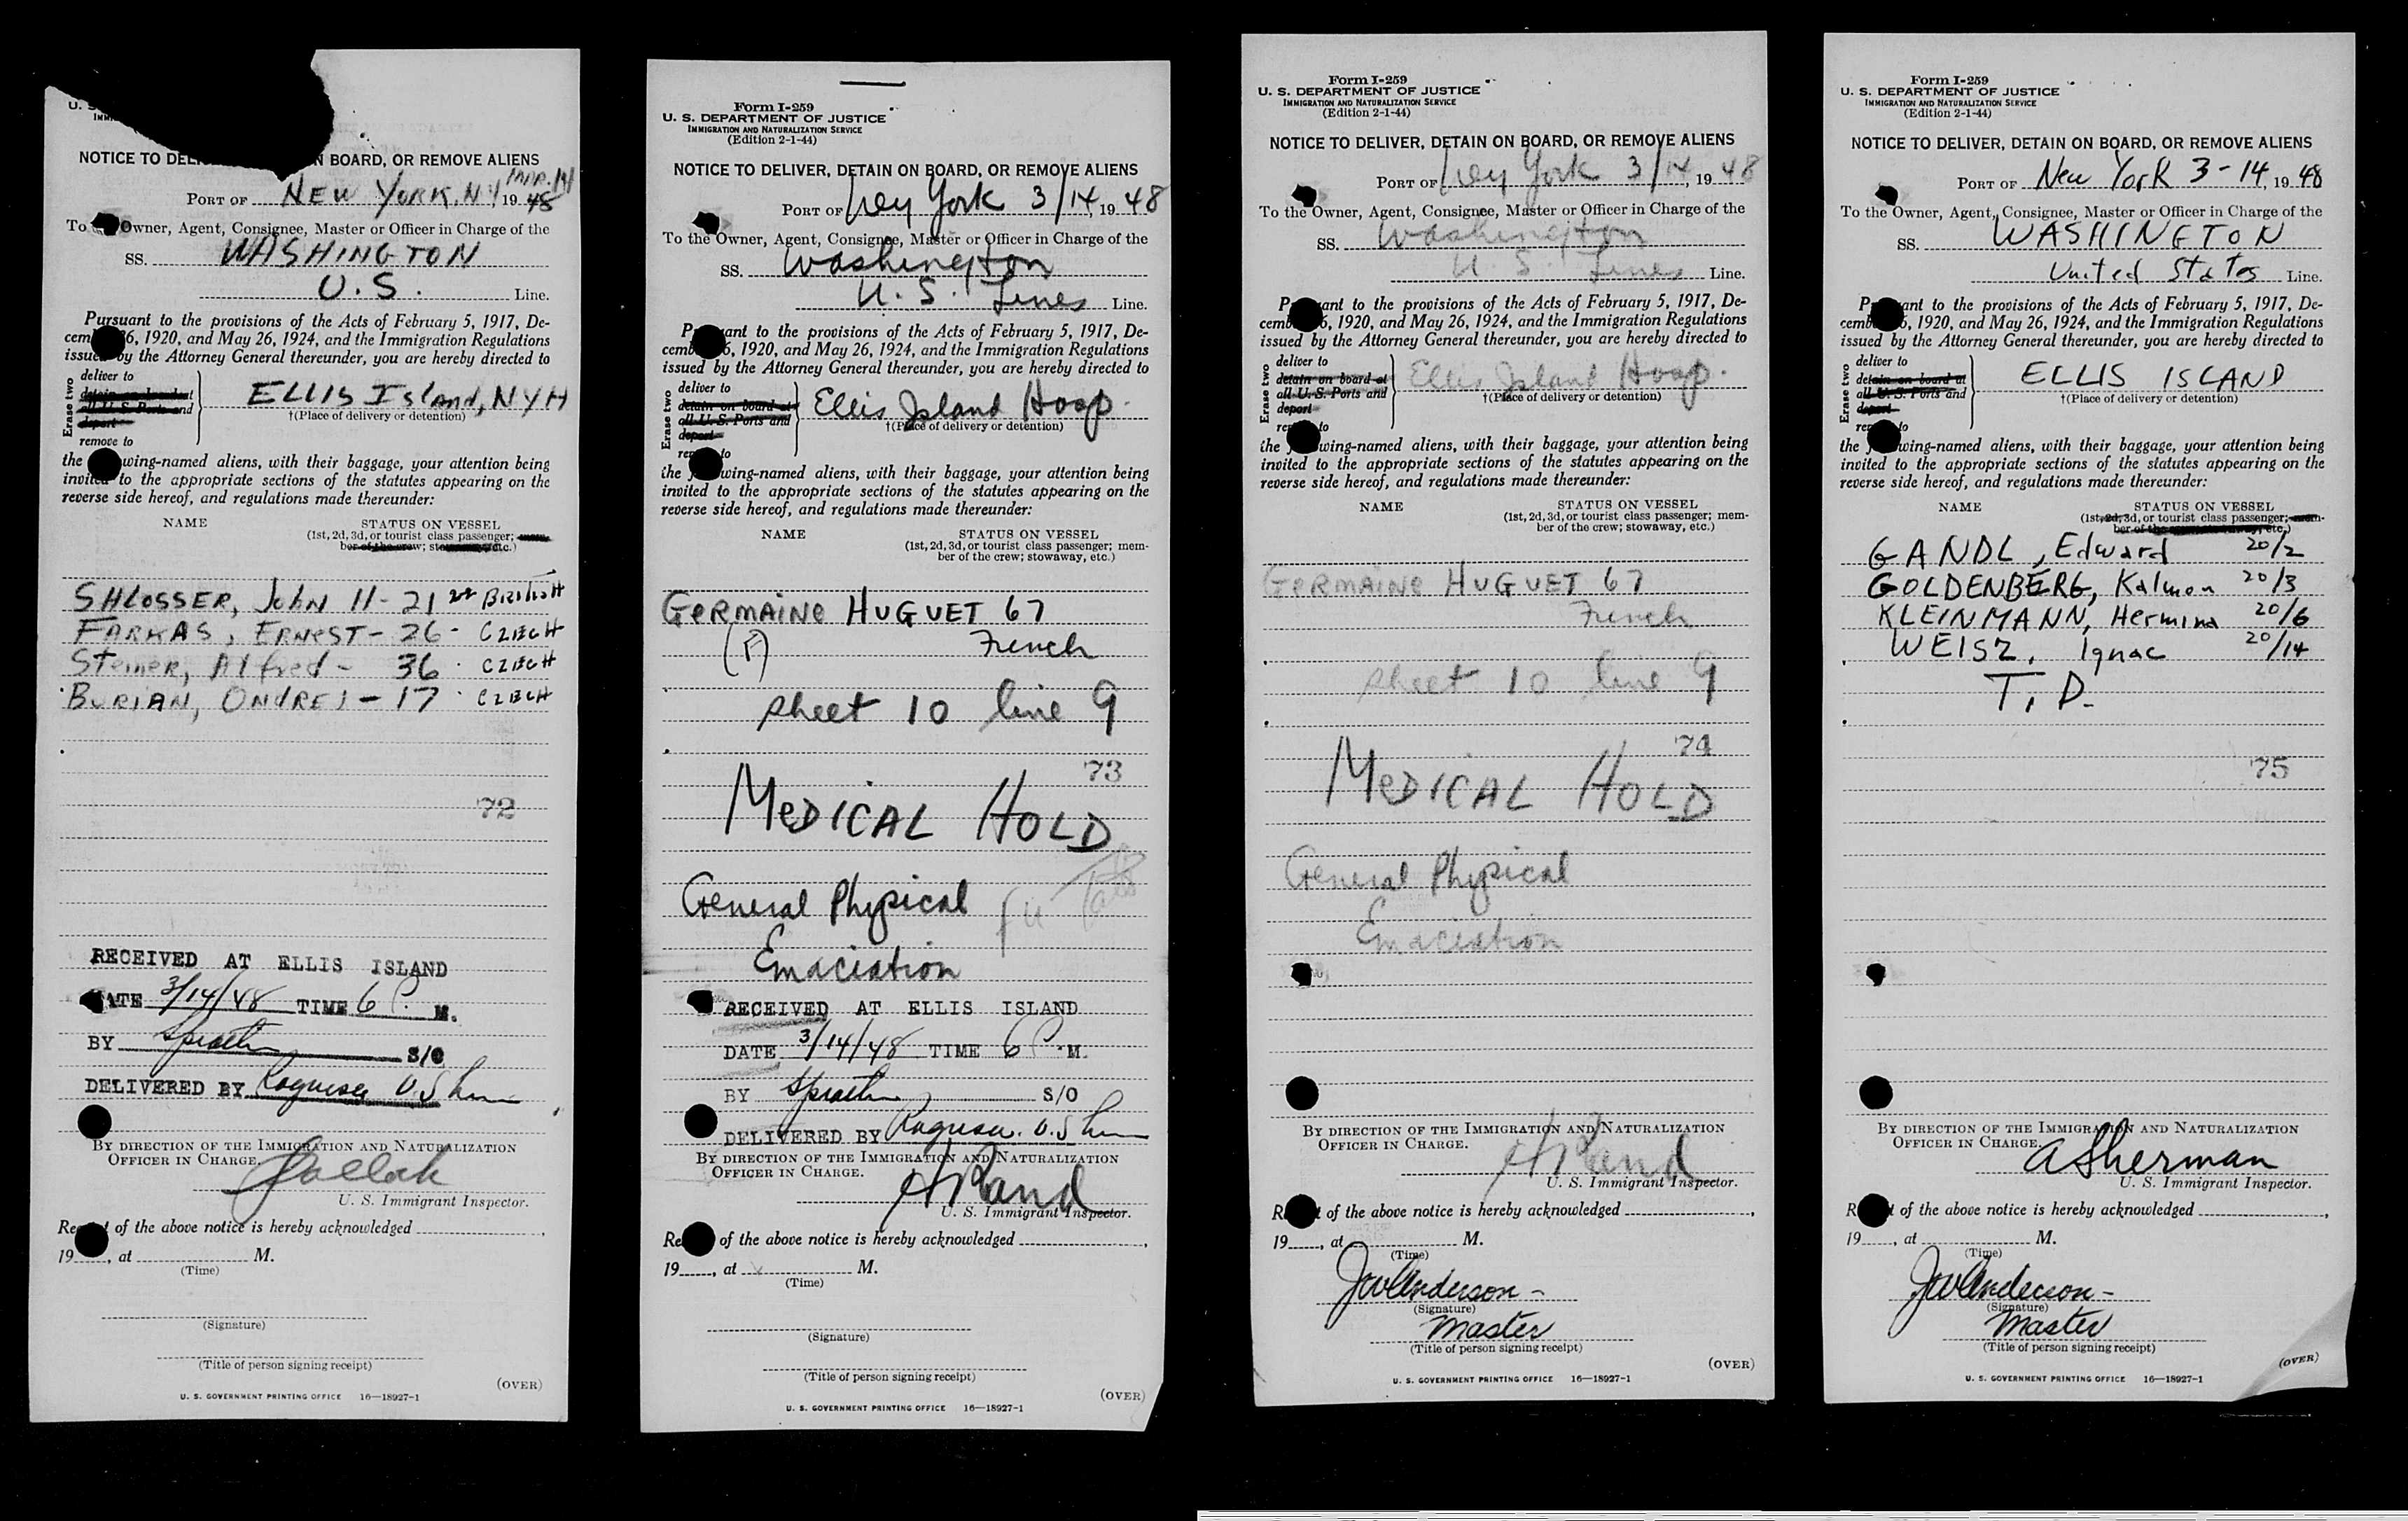 U. S
IMM
NOTICE TO DEL N BOARD, OR REMOVE ALIENS
MAR. 14
PORT OF NEW YORK, N.Y 19 48
To Owner, Agent, Consignee, Master or Officer in Charge of the
SS. WASHINGTON
U.S. Line.
Pursuant to the provisions of the Acts of February 5, 1917, De-
cem 6, 1920, and May 26, 1924, and the Immigration Regulations
issued by the Attorney General thereunder, you are hereby directed to
Erase two
deliver to
detain on board at
all U.S. Ports and
deport
remove to
ELLIS Island, NYH
†(Place of delivery or detention)
the wing-named aliens, with their baggage, your attention being
invited to the appropriate sections of the statutes appearing on the
reverse side hereof, and regulations made thereunder:
NAME STATUS ON VESSEL
(1st, 2d, 3d, or tourist class passenger; mem-
ber of the crew; stowaway, etc.)
SHLOSSER, John 11-21 BRITISH
FARKAS, ERNEST - 26 - CZECH
Steiner, Alfred - 36 - CZECH
BURIAN, ONDREJ - 17 - CZECH
72
RECEIVED AT ELLIS ISLAND
DATE 3/14/48 TIME 6 P. M.
BY S/O
DELIVERED BY Ragusa U.S Line
BY DIRECTION OF THE IMMIGRATION AND NATURALIZATION
OFFICER IN CHARGE.
U. S. Immigrant Inspector.
Re t of the above notice is hereby acknowledged
19 , at M.
(Time)
(Signature)
(Title of person signing receipt)
(OVER)
U. S. GOVERNMENT PRINTING OFFICE 16—18927-1
Form I-259
U. S. DEPARTMENT OF JUSTICE
IMMIGRATION AND NATURALIZATION SERVICE
(Edition 2-1-44)
NOTICE TO DELIVER, DETAIN ON BOARD, OR REMOVE ALIENS
PORT OF New York 3/14, 19 48
To the Owner, Agent, Consignee, Master or Officer in Charge of the
SS. Washington
U.S. Lines Line.
P ant to the provisions of the Acts of February 5, 1917, De-
cemb 6, 1920, and May 26, 1924, and the Immigration Regulations
issued by the Attorney General thereunder, you are hereby directed to
Erase two
deliver to
detain on board at
all U.S. Ports and
deport
re to
Ellis Island Hosp.
†(Place of delivery or detention)
the wing-named aliens, with their baggage, your attention being
invited to the appropriate sections of the statutes appearing on the
reverse side hereof, and regulations made thereunder:
NAME STATUS ON VESSEL
(1st, 2d, 3d, or tourist class passenger; mem-
ber of the crew; stowaway, etc.)
GERMAINE HUGUET 67
(F) French
sheet 10 line 9
73
MEDICAL HOLD
General Physical
Emaciation
RECEIVED AT ELLIS ISLAND
DATE 3/14/48 TIME 6 P. M.
BY S/O
DELIVERED BY Ragusa. U.S Line
BY DIRECTION OF THE IMMIGRATION AND NATURALIZATION
OFFICER IN CHARGE.
A Rand
U. S. Immigrant Inspector.
Re of the above notice is hereby acknowledged
19 , at M.
(Time)
(Signature)
(Title of person signing receipt)
(OVER)
U. S. GOVERNMENT PRINTING OFFICE 16—18927-1
Form I-259
U. S. DEPARTMENT OF JUSTICE
IMMIGRATION AND NATURALIZATION SERVICE
(Edition 2-1-44)
NOTICE TO DELIVER, DETAIN ON BOARD, OR REMOVE ALIENS
PORT OF New York 3/14, 19 48
To the Owner, Agent, Consignee, Master or Officer in Charge of the
SS. Washington
U. S. Lines Line.
P ant to the provisions of the Acts of February 5, 1917, De-
cemb 6, 1920, and May 26, 1924, and the Immigration Regulations
issued by the Attorney General thereunder, you are hereby directed to
Erase two
deliver to
detain on board at
all U.S. Ports and
deport
re to
Ellis Island Hosp.
†(Place of delivery or detention)
the wing-named aliens, with their baggage, your attention being
invited to the appropriate sections of the statutes appearing on the
reverse side hereof, and regulations made thereunder:
NAME STATUS ON VESSEL
(1st, 2d, 3d, or tourist class passenger; mem-
ber of the crew; stowaway, etc.)
GERMAINE HUGUET 67
French
sheet 10 line 9
74
MEDICAL HOLD
General Physical
Emaciation
BY DIRECTION OF THE IMMIGRATION AND NATURALIZATION
OFFICER IN CHARGE.
A Rand
U. S. Immigrant Inspector.
R t of the above notice is hereby acknowledged
19 , at M.
(Time)
JW Anderson -
(Signature)
Master
(Title of person signing receipt)
(OVER)
U. S. GOVERNMENT PRINTING OFFICE 16—18927-1
Form I-259
U. S. DEPARTMENT OF JUSTICE
IMMIGRATION AND NATURALIZATION SERVICE
(Edition 2-1-44)
NOTICE TO DELIVER, DETAIN ON BOARD, OR REMOVE ALIENS
PORT OF New York 3-14, 19 48
To the Owner, Agent, Consignee, Master or Officer in Charge of the
SS. WASHINGTON
United States Line.
P ant to the provisions of the Acts of February 5, 1917, De-
cemb 6, 1920, and May 26, 1924, and the Immigration Regulations
issued by the Attorney General thereunder, you are hereby directed to
Erase two
deliver to
detain on board at
all U.S. Ports and
deport
re to
ELLIS ISLAND
†(Place of delivery or detention)
the wing-named aliens, with their baggage, your attention being
invited to the appropriate sections of the statutes appearing on the
reverse side hereof, and regulations made thereunder:
NAME STATUS ON VESSEL
(1st, 2d, 3d, or tourist class passenger; mem-
ber of the crew; stowaway, etc.)
GANDL, Edward 20/2
GOLDENBERG, Kalmon 20/3
KLEINMANN, Hermina 20/6
WEISZ, Ignac 20/14
T.D.
75
BY DIRECTION OF THE IMMIGRATION AND NATURALIZATION
OFFICER IN CHARGE.
A Sherman
U. S. Immigrant Inspector.
R t of the above notice is hereby acknowledged
19 , at M.
(Time)
JW Anderson -
(Signature)
Master
(Title of person signing receipt)
(OVER)
U. S. GOVERNMENT PRINTING OFFICE 16—18927-1